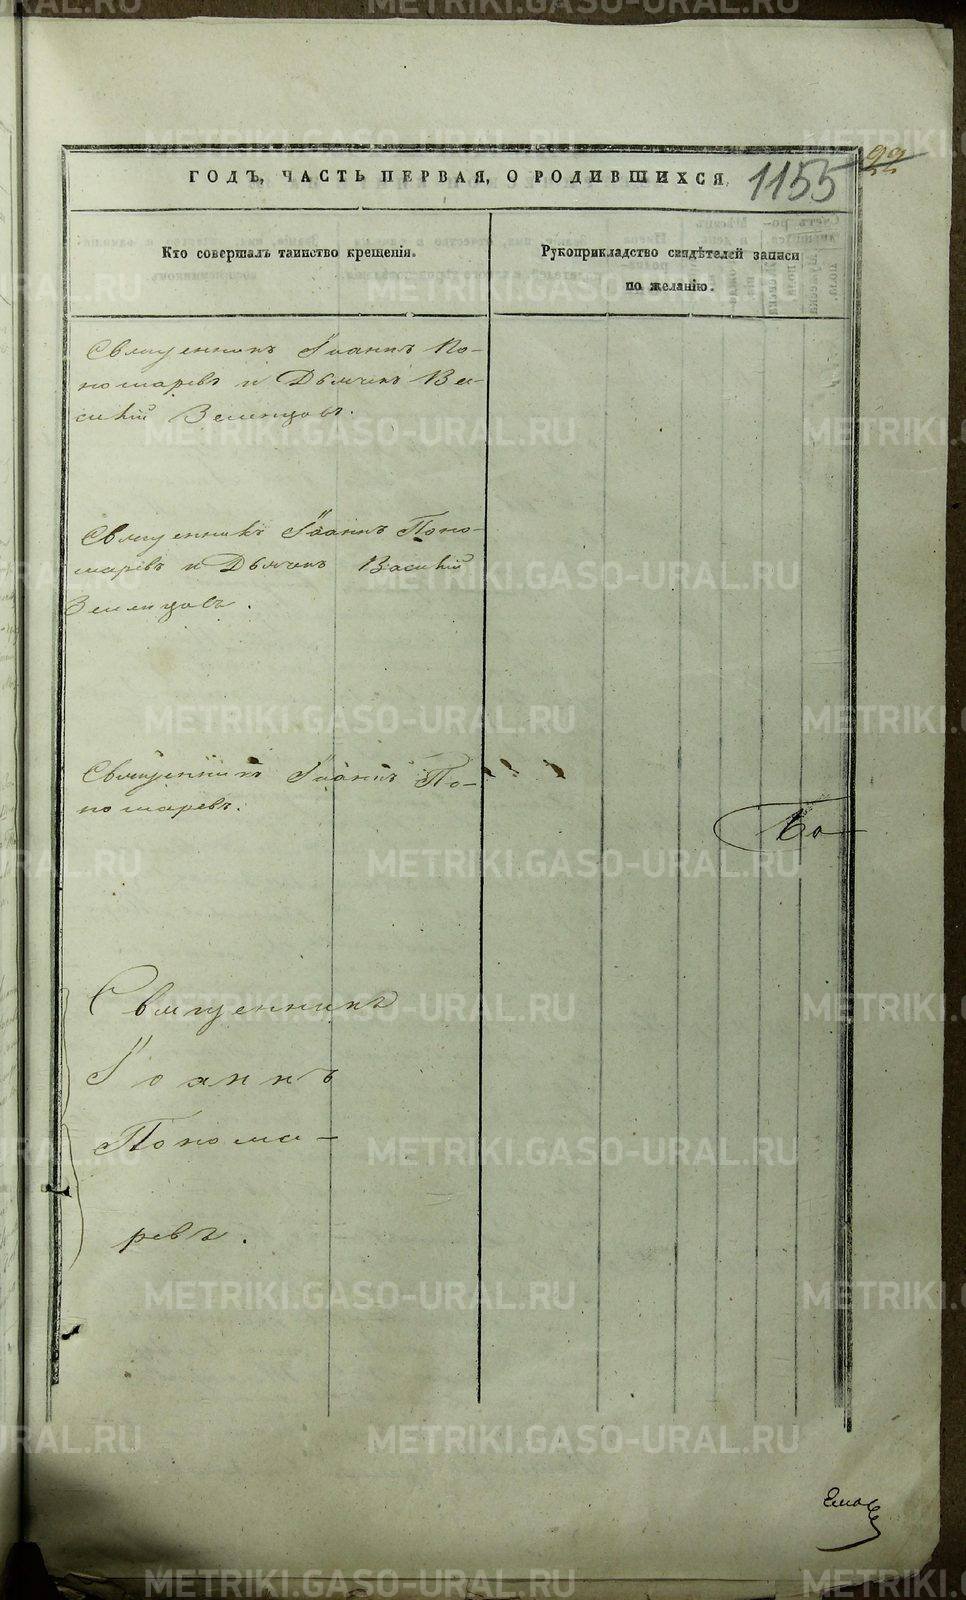 ГОДЪ, ЧАСТЬ ПЕРВАЯ, О РОДИВШИХСЯ. 1155
22
Кто совершалъ таинство крещенія.
Рукоприкладство свидѣтелей записи
по желанію.
Священникъ Іоаннъ По-
номаревъ и Дьячекъ Ва-
силій Землицовъ.
Священникъ Іоаннъ Поно-
маревъ и Дьячекъ Василій
Землицовъ.
Священникъ Іоаннъ По-
номаревъ.
Священникъ
Іоаннъ
Понома-
ревъ.
METRIKI.GASO-URAL.RU